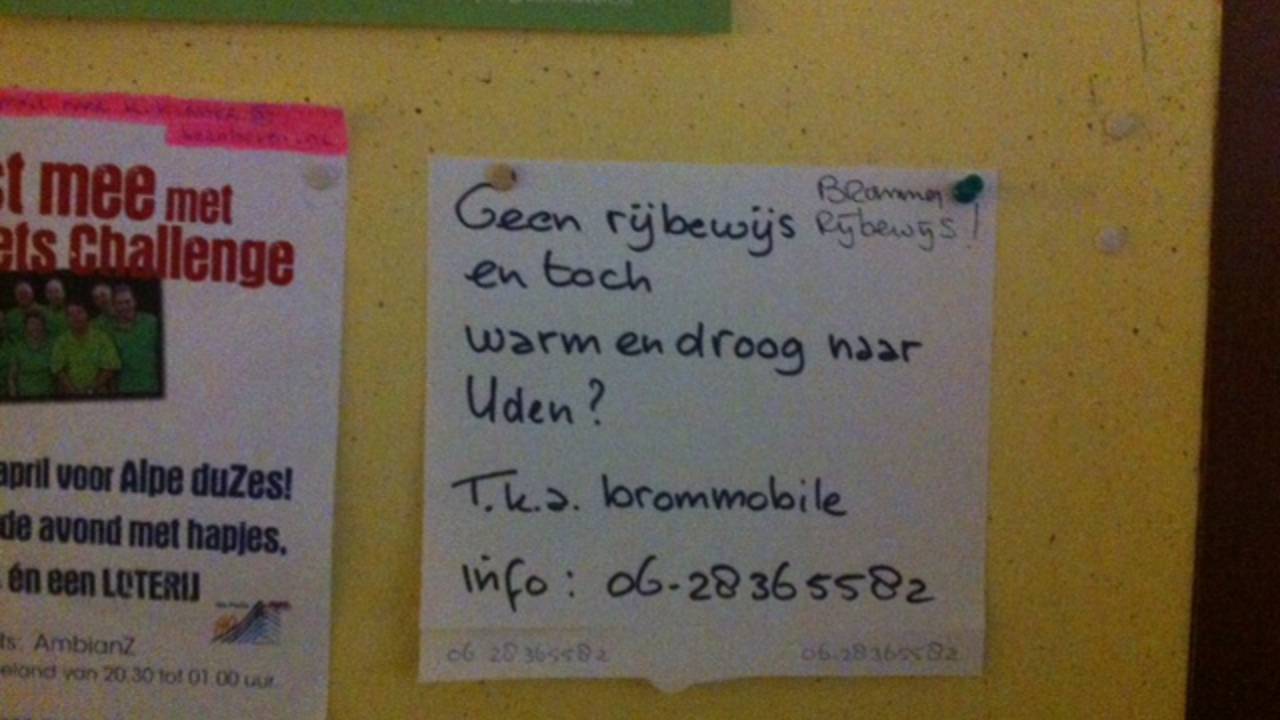 st mee met
ets Challenge
april voor Alpe duZes!
de avond met hapjes,
én een LOTERIJ
ts: AmbianZ
eland van 20.30 tot 01.00 uur.
Geen rijbewijs
Brommer
Rijbewijs!
en toch
warm en droog naar
Uden?
T.k.a. brommobile
info: 06-28365582
06 28365582
06-28365582